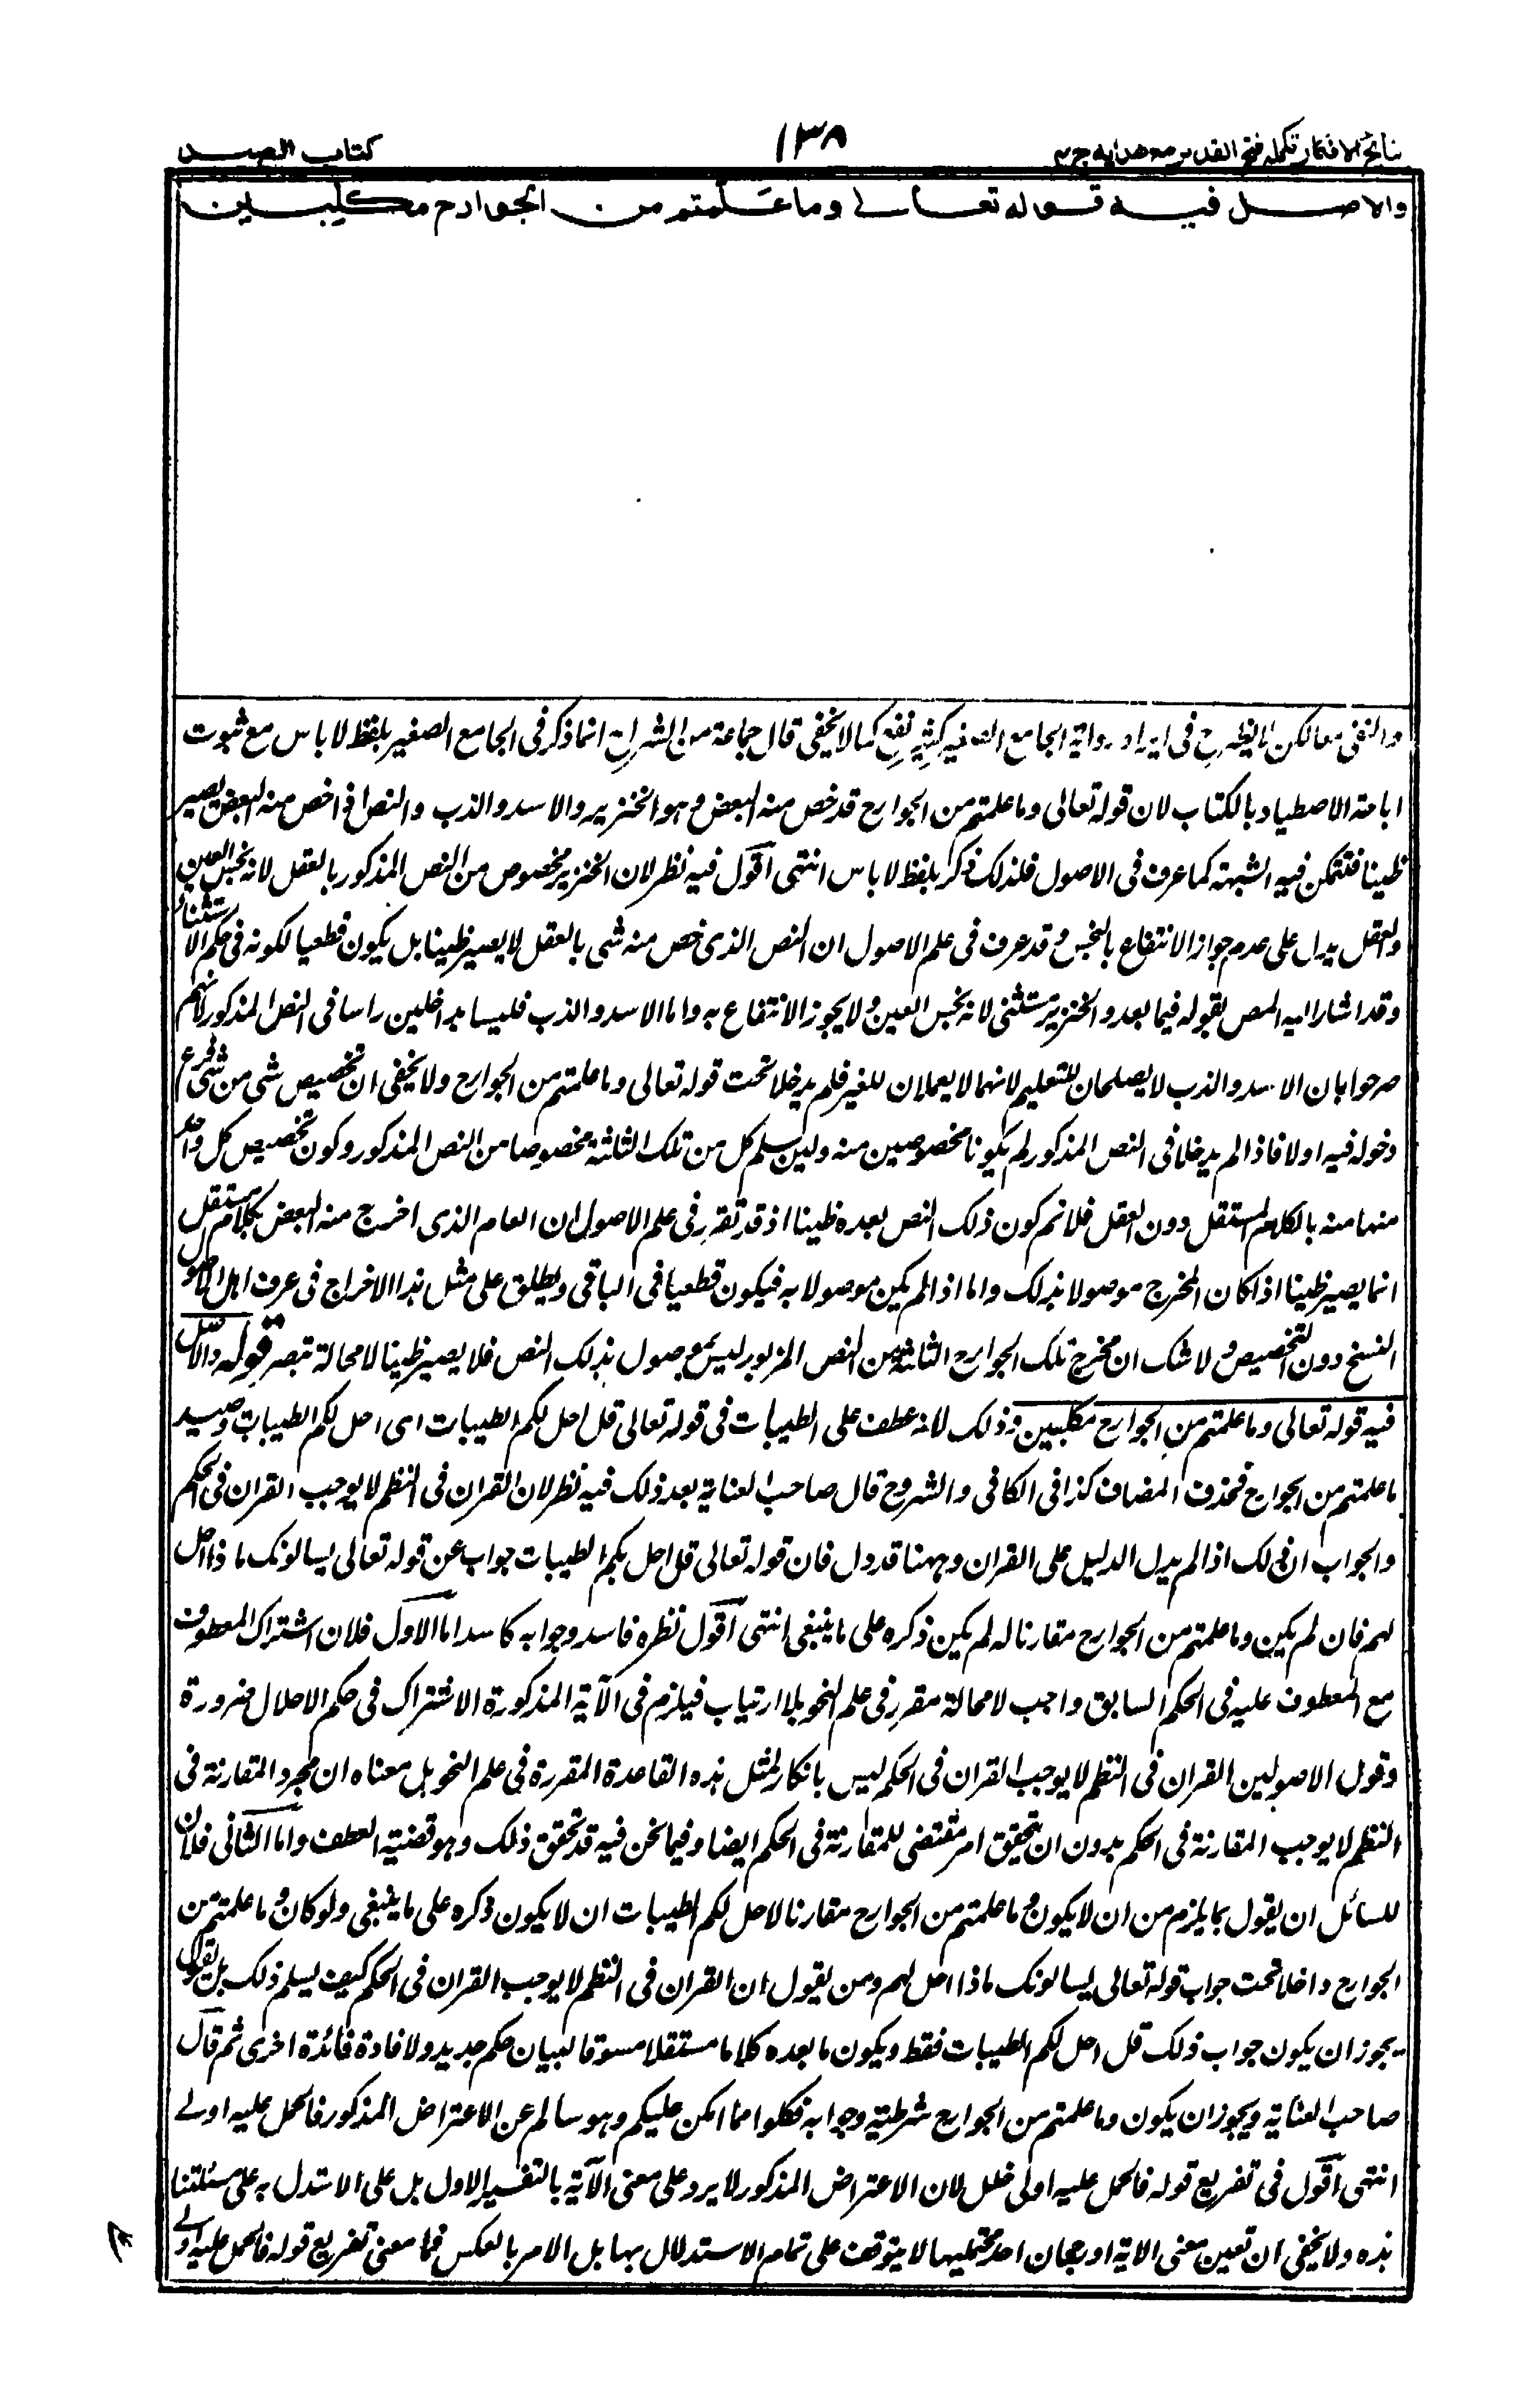 نتائج الافكار تكمله فتح القدير مع هدايه ج ٨
١٣٨
كتاب الصيد
والاصل فيه قوله تعالى وما علمتم من الجوارح مكلبين
والنفى معا لكن لم يظهر ح فى ايراد رواية الجامع الصغير كثير نفع كما لا يخفى قال جماعة من الشراح انما ذكر فى الجامع الصغير بلفظ لا باس مع ثبوت
اباحة الاصطياد بالكتاب لان قوله تعالى وما علمتم من الجوارح قد خص منه البعض وهو الخنزير والاسد والذب والنص اذا خص منه البعض يصير
ظنيا فتتمكن فيه الشبهة كما عرف فى الاصول فلذلك ذكر بلفظ لا باس انتهى اقول فيه نظر لان الخنزير مخصوص من النص المذكور بالعقل لانه نجس العين
والعقل يدل على عدم جواز الانتفاع بالنجس وقد عرف فى علم الاصول ان النص الذى خص منه شى بالعقل لا يصير ظنيا بل يكون قطعيا لكونه فى حكم الاستثناء
وقد اشار اليه المص بقوله فيما بعد والخنزير مستثنى لانه نجس العين ولا يجوز الانتفاع به واما الاسد والذب فليسا بداخلين راسا فى النص المذكور لانهم
صرحوا بان الاسد والذب لا يصلحان للتعليم لانهما لا يعملان للغير فلم يدخلا تحت قوله تعالى وما علمتم من الجوارح ولا يخفى ان تخصيص شى من شى فرع
دخوله فيه اولا فاذا لم يدخلا فى النص المذكور لم يكونا مخصوصين منه ولئن سلم كل من تلك الثلثة مخصوصا من النص المذكور وكون تخصيص كل واحد
منها منه بالكلام المستقل دون العقل فلا نم كون ذلك النص بعده ظنيا اذ قد تقرر فى علم الاصول ان العام الذى اخرج منه البعض بكلام مستقل
انما يصير ظنيا اذا كان المخرج موصولا بذلك واما اذا لم يكن موصولا به فيكون قطعيا فى الباقى ويطلق على مثل هذا الاخراج فى عرف اهل الاصول
النسخ دون التخصيص ولا شك ان مخرج تلك الجوارح الثلثة من النص المزبور ليس بموصول بذلك النص فلا يصير ظنيا لا محالة تبصر قوله والاصل
فيه قوله تعالى وما علمتم من الجوارح مكلبين وذلك لانه عطف على الطيبات فى قوله تعالى قل احل لكم الطيبات اى احل لكم الطيبات وصيد
ما علمتم من الجوارح فحذف المضاف كذا فى الكافى والشروح قال صاحب العناية بعد ذلك فيه نظر لان القران فى النظم لا يوجب القران فى الحكم
والجواب ان ذلك اذا لم يدل الدليل على القران وههنا قد دل فان قوله تعالى قل احل لكم الطيبات جواب عن قوله تعالى يسالونك ماذا احل
لهم فان لم يكن وما علمتم من الجوارح مقارنا له لم يكن ذكره على ما ينبغى انتهى اقول نظره فاسد وجوابه كاسد اما الاول فلان اشتراك المعطوف
مع المعطوف عليه فى الحكم السابق واجب لا محالة مقرر فى علم النحو بلا ارتياب فيلزم فى الآية المذكورة الاشتراك فى حكم الاحلال ضرورة
وقول الاصوليين القران فى النظم لا يوجب القران فى الحكم ليس بانكار لمثل هذه القاعدة المقررة فى علم النحو بل معناه ان مجرد المقارنة فى
النظم لا يوجب المقارنة فى الحكم بدون ان يتحقق امر مقتضى للمقارنة فى الحكم ايضا وفيما نحن فيه قد تحقق ذلك وهو قضية العطف واما الثانى فلان
للسائل ان يقول بما يلزم من ان لا يكون وما علمتم من الجوارح مقارنا لاحل لكم الطيبات ان لا يكون ذكره على ما ينبغى ولو كان وما علمتم من
الجوارح داخلا تحت جواب قوله تعالى يسالونك ماذا احل لهم ومن يقول ان القران فى النظم لا يوجب القران فى الحكم كيف يسلم ذلك بل يقول
يجوز ان يكون جواب ذلك قل احل لكم الطيبات فقط ويكون ما بعده كلاما مستقلا مسوقا لبيان حكم جديد ولافادة فائدة اخرى ثم قال
صاحب العناية ويجوز ان يكون وما علمتم من الجوارح شرطية وجوابه فكلوا مما امسكن عليكم وهو سالم عن الاعتراض المذكور فالحمل عليه اولى
انتهى اقول فى تفريع قوله فالحمل عليه اولى خلل لان الاعتراض المذكور لا يرد على معنى الآية بالتفسير الاول بل على الاستدلال به على مسئلتنا
هذه ولا يخفى ان تعين معنى الاية او رجحان احد محتمليها لا يتوقف على تمام الاستدلال بها بل الامر بالعكس فما معنى تفريع قوله فالحمل عليه اولى